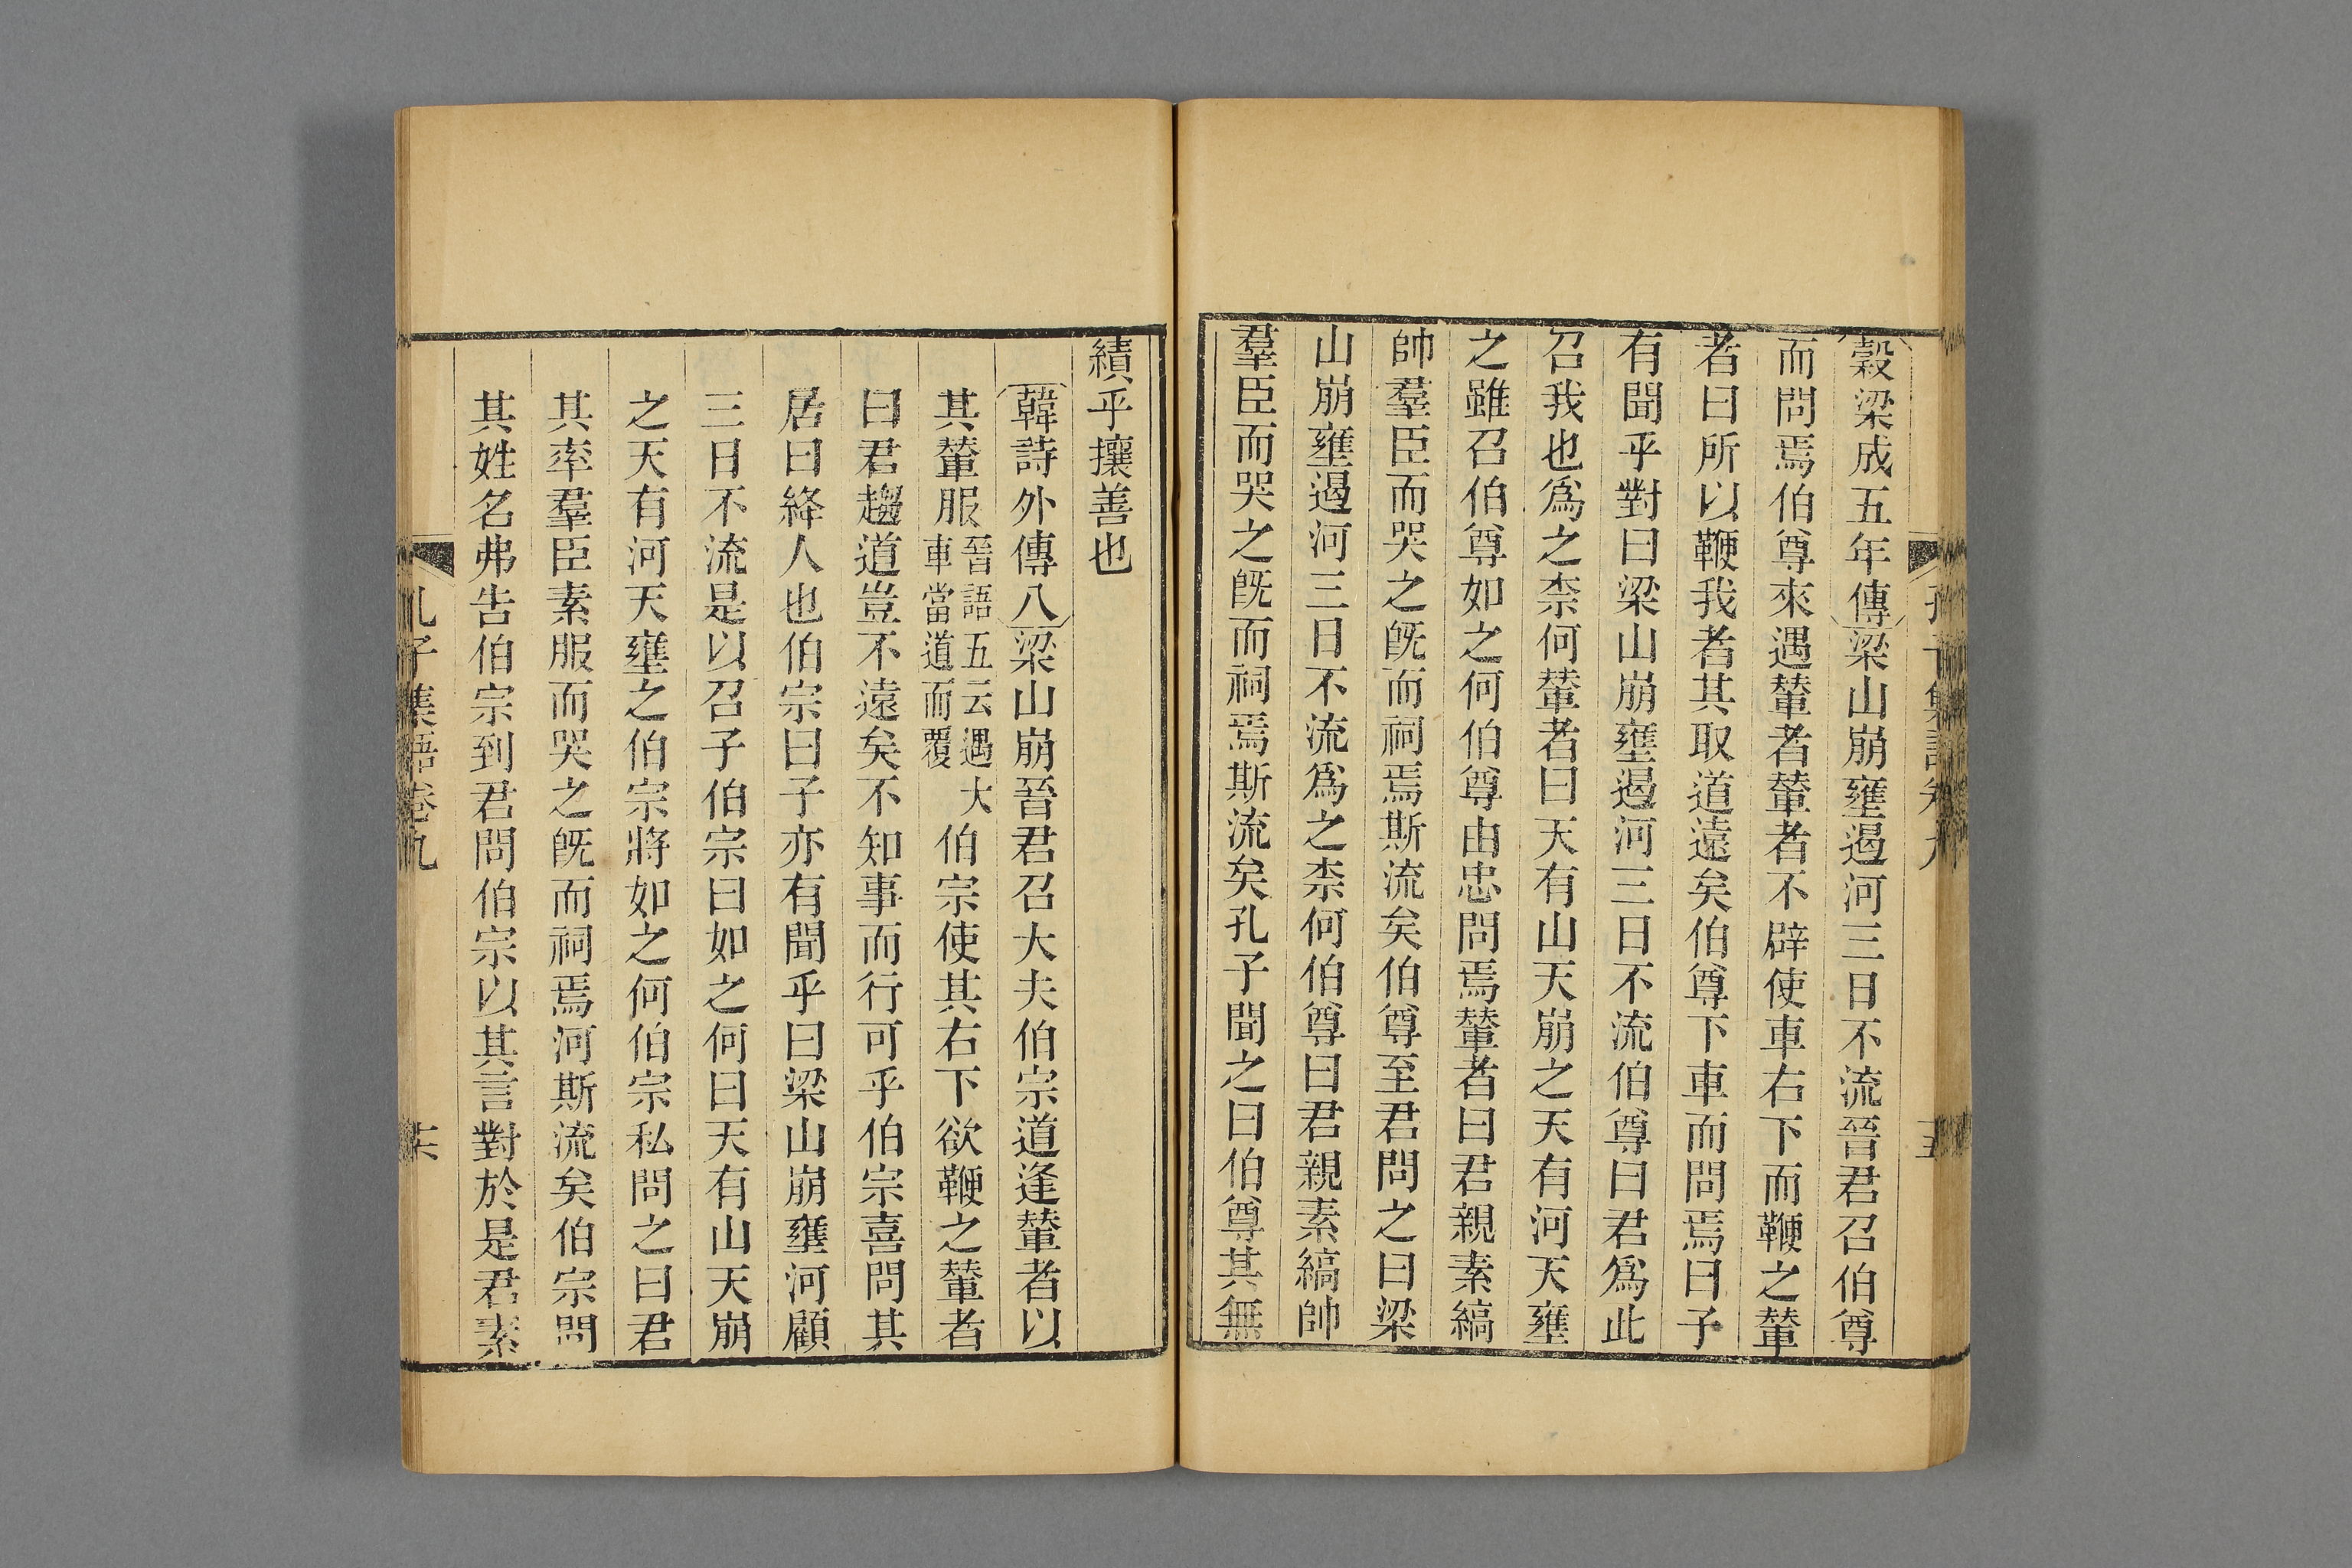 穀梁成五年傳梁山崩壅遏河三日不流晉君召伯尊
而問焉伯尊來遇輦者輦者不辟使車右下而鞭之輦
者曰所以鞭我者其取道遠矣伯尊下車而問焉曰子
有聞乎對曰梁山崩壅遏河三日不流伯尊曰君爲此
召我也爲之柰何輦者曰天有山天崩之天有河天壅
之雖召伯尊如之何伯尊由忠問焉輦者曰君親素縞
帥羣臣而哭之旣而祠焉斯流矣伯尊至君問之曰梁
山崩壅遏河三日不流爲之柰何伯尊曰君親素縞帥
羣臣而哭之旣而祠焉斯流矣孔子聞之曰伯尊其無
績乎攘善也
韓詩外傳八梁山崩晉君召大夫伯宗道逢輦者以
其輦服晉語五云遇大車當道而覆伯宗使其右下欲鞭之輦者
曰君趨道豈不遠矣不知事而行可乎伯宗喜問其
居曰絳人也伯宗曰子亦有聞乎曰梁山崩壅河顧
三日不流是以召子伯宗曰如之何曰天有山天崩
之天有河天壅之伯宗將如之何伯宗私問之曰君
其率羣臣素服而哭之旣而祠焉河斯流矣伯宗問
其姓名弗告伯宗到君問伯宗以其言對於是君素
孔子集語卷九